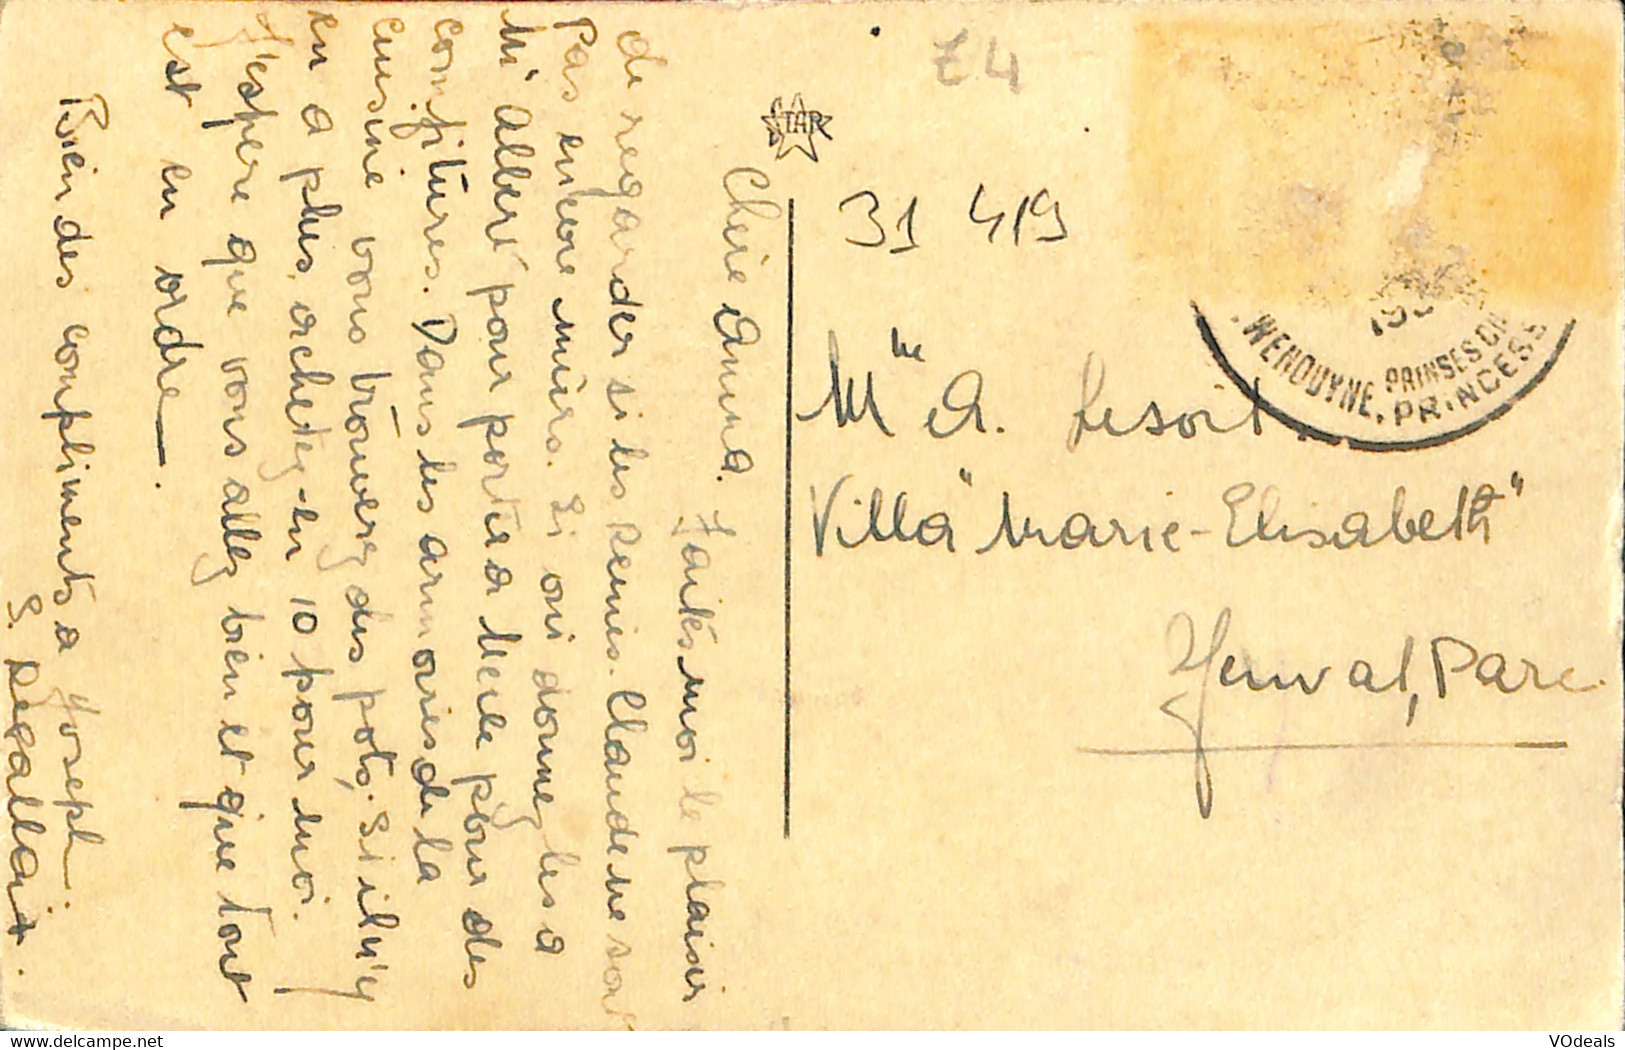 Chère Anna. Faites moi le plaisir
de regarder si les Reines. Claude ne sont
Pas encore mûrs. Si oui donnez les a
Mr Albert pour porter a Mère pour des
confitures. Dans les armoires de la
cuisine vous trouverez des pots, si il n'y
en a plus, achetez-en 10 pour moi.
J'espère que vous allez bien et que tout
est en ordre.
Bien des compliments a Joseph
S.
Z4
STAR
31 419
WENDUYNE, PRINSES
PRINCESS
Mme A. Lesoit
Villa "Marie-Elisabeth"
Genval, Parc.
delcampe.net
VOdeals